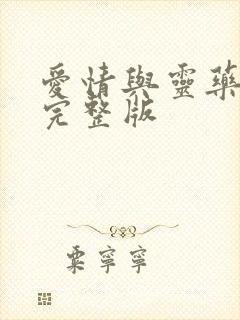 愛情與靈藥
完整版
粟寧寧